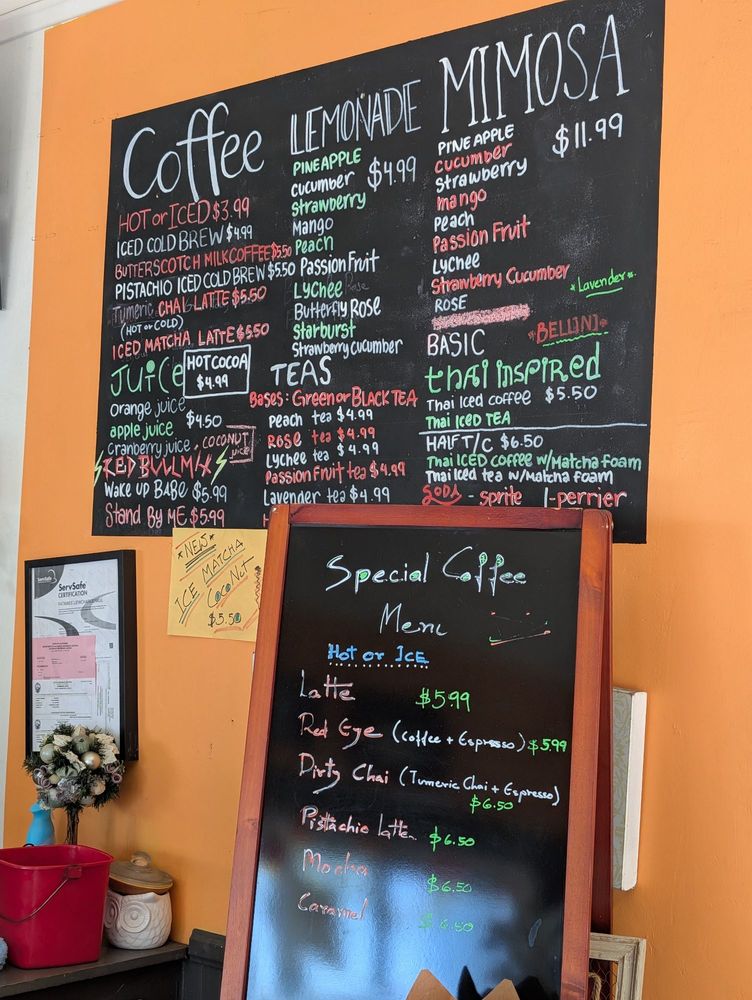 Coffee
HOT or ICED $3.99
ICED COLD BREW $4.99
BUTTERSCOTCH MILK COFFEE $5.50
PISTACHIO ICED COLD BREW $5.50
Tumeric CHAI LATTE $5.50
(HOT or COLD)
ICED MATCHA LATTE $5.50
JUICE
HOT COCOA
$4.99
Orange juice
apple juice $4.50
Cranberry juice, COCONUT
juice
RED BULL MIX
Wake up BABE $5.99
Stand By ME $5.99
LEMONADE
PINEAPPLE
cucumber $4.99
Strawberry
Mango
Peach
Passion Fruit
Lychee
Butterfly ROSE
Starburst
Strawberry cucumber
TEAS
Bases: Green or BLACK TEA
Peach tea $4.99
ROSE tea $4.99
Lychee tea $4.99
Passion Fruit tea $4.99
Lavender tea $4.99
MIMOSA
PINEAPPLE
$11.99
cucumber
Strawberry
mango
Peach
Passion Fruit
Lychee
Strawberry Cucumber
Lavender
ROSE
BELLINI
BASIC
thai inspired
Thai Iced coffee $5.50
Thai ICED TEA
HALF T/C $6.50
Thai ICED coffee w/Matcha foam
Thai Iced tea w/matcha foam
SODA - sprite 1-perrier
*NEW*
ICE MATCHA
COCONUT
$5.50
ServSafe
CERTIFICATION
Special Coffee
Menu
Hot or ICE
Latte $5.99
Red Eye (Coffee + Espresso) $5.99
Dirty Chai (Tumeric Chai + Espresso)
$6.50
Pistachio Latte $6.50
Mocha $6.50
Caramel $6.50